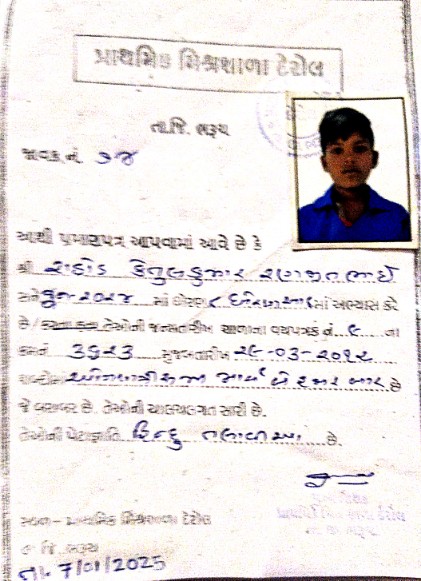 પ્રાથમિક મિશ્રશાળા દેરોલ
તા.જિ. ભરૂચ
જાવક નં. ૭૪
આથી પ્રમાણપત્ર આપવામાં આવે છે કે
શ્રી રાઠોડ કેતુલકુમાર રણજીતભાઈ
સને જુન-૨૦૨૪ માં ધોરણ ૮ માં અભ્યાસ કરે
છે / કરતા હતા તેઓની જન્મતારીખ શાળાના વયપત્રક નં. ૯ ના
ક્રમનં ૩૬૨૩ મુજબ તારીખ ૨૯-૦૩-૨૦૧૨
શબ્દોમાં ઓગણત્રીસમી માર્ચ બે હજાર બાર છે
જે બરાબર છે. તેઓની ચાલચલગત સારી છે.
તેઓની પેટાજ્ઞાતિ હિન્દુ તલાવીઆ છે.
સ્થળ - પ્રાથમિક મિશ્રશાળા દેરોલ
જિ. ભરૂચ
તા. 7/01/2025